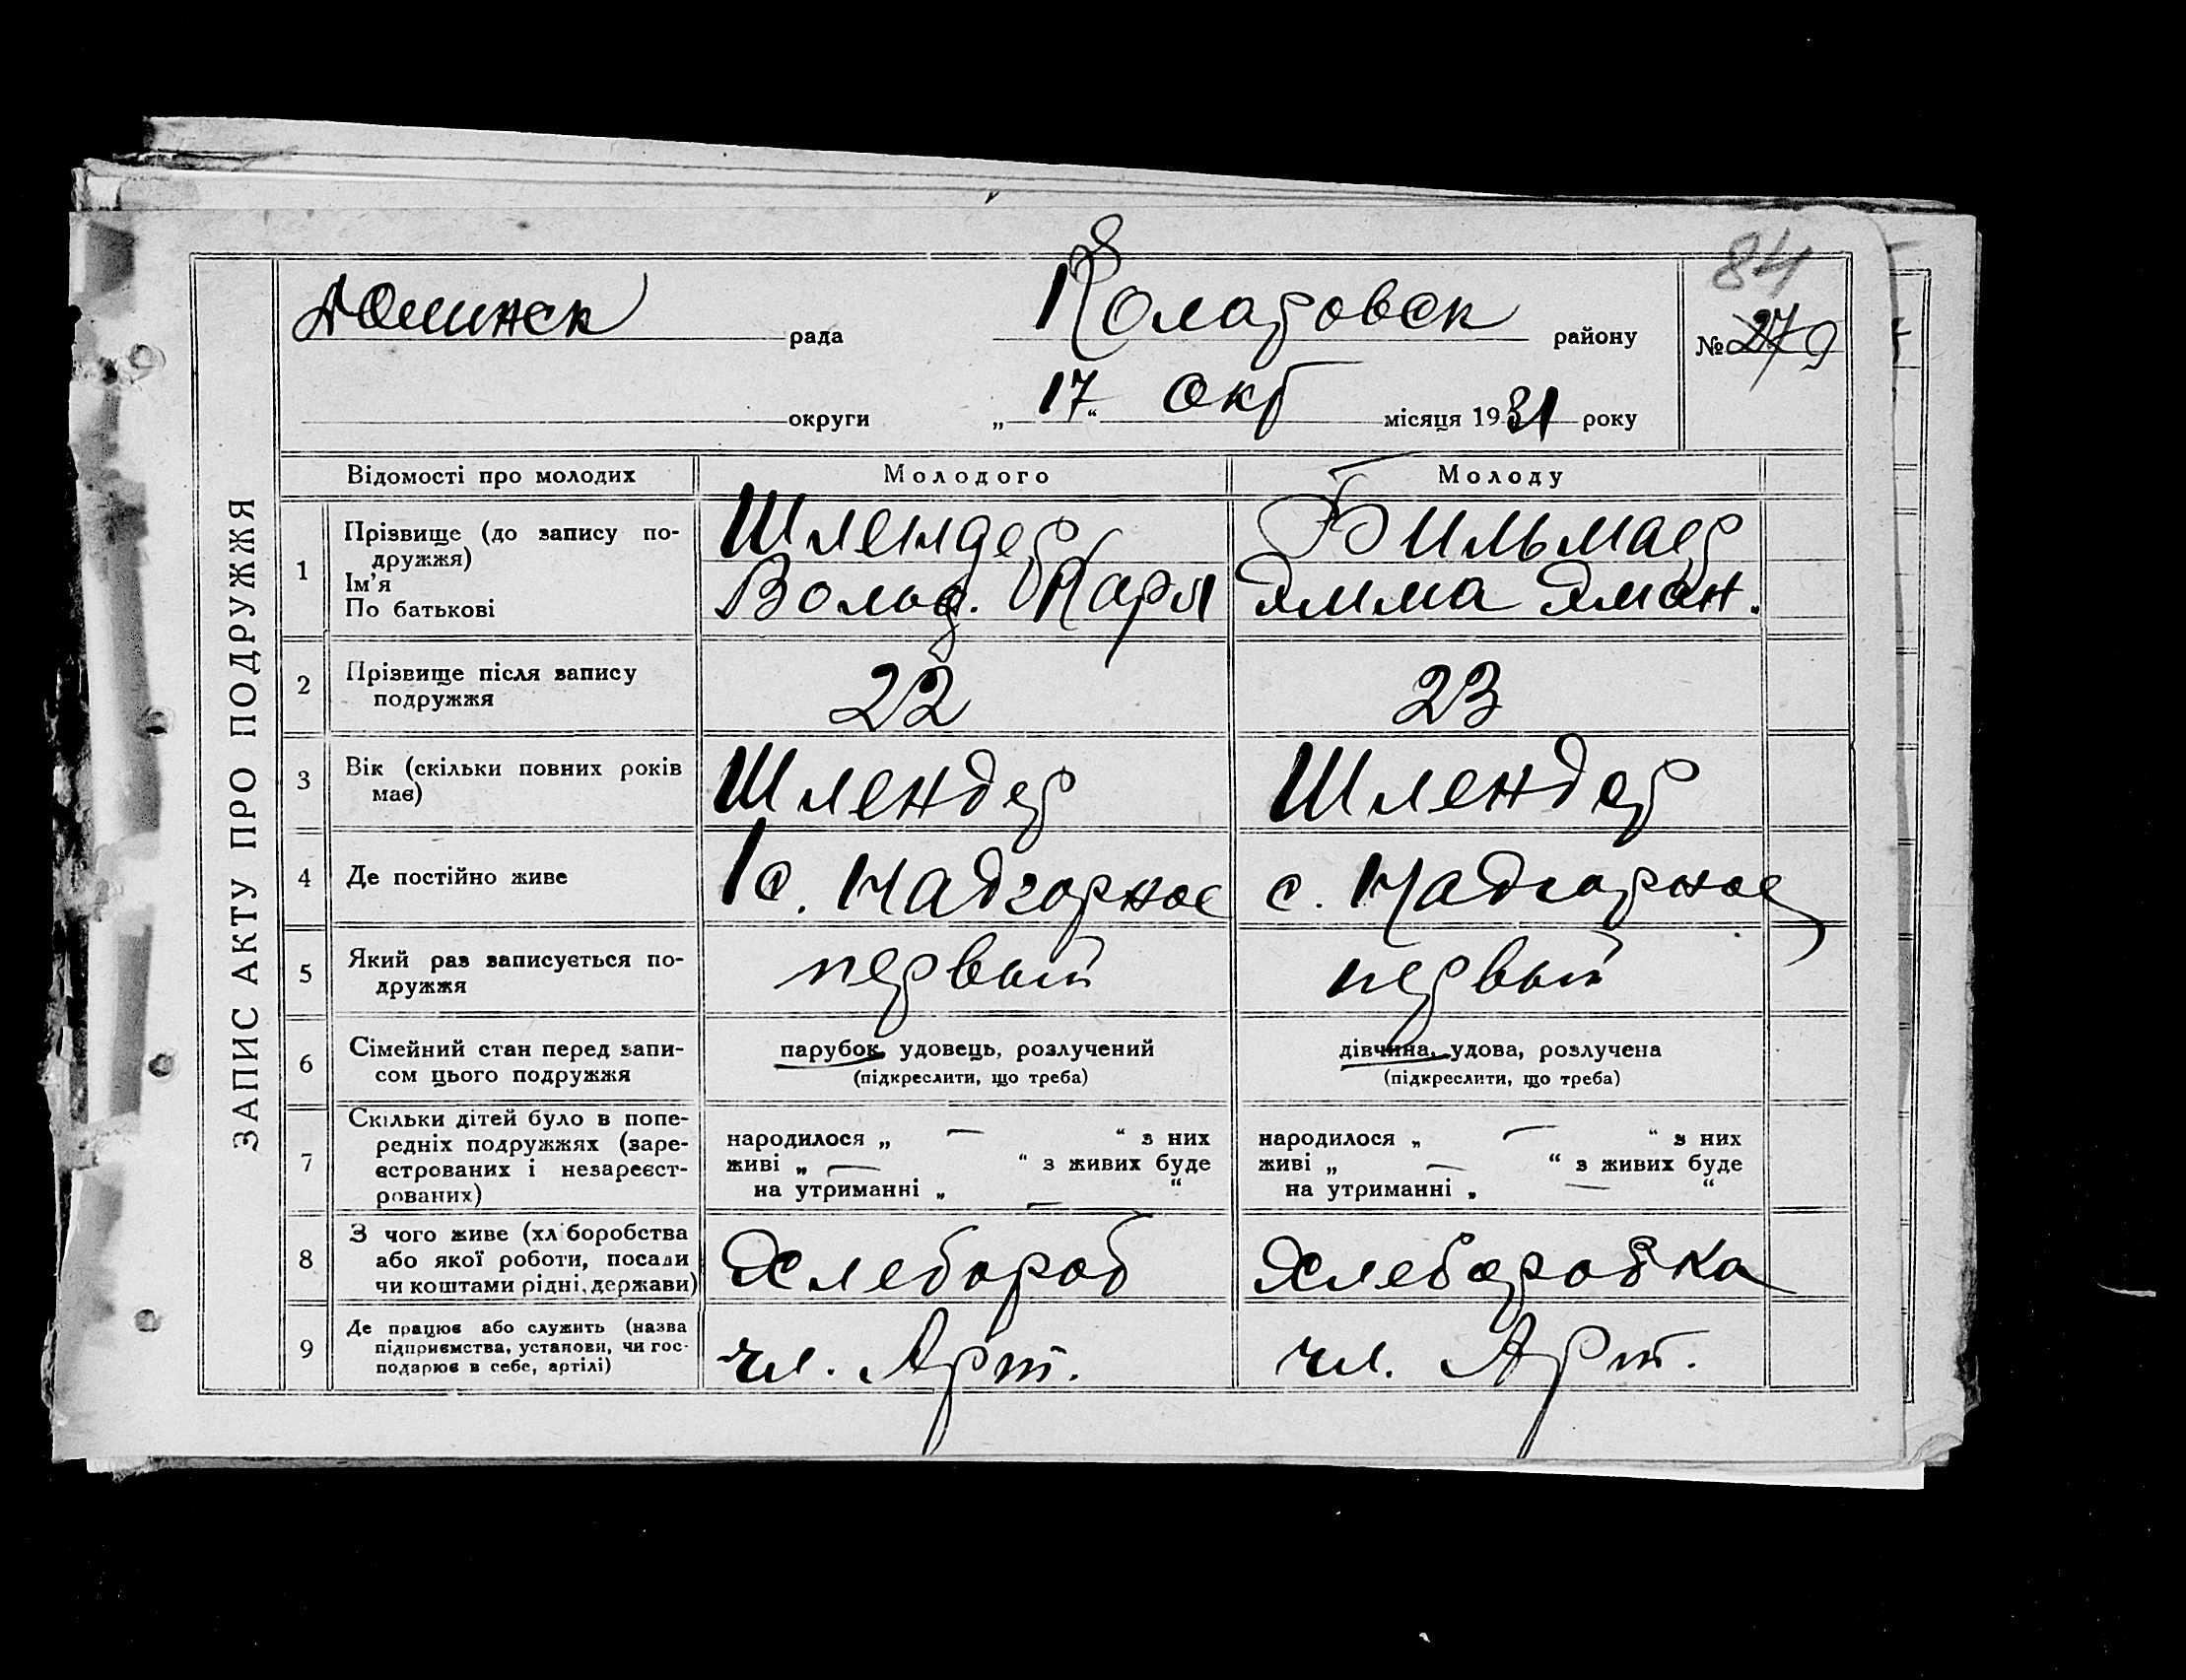 84
рада
Коларовск району
№ 27 9
округи „17“ Окт місяця 1931 року
ЗАПИС АКТУ ПРО ПОДРУЖЖЯ
Відомості про молодих Молодого Молоду
1 Прізвище (до запису по-
дружжя)
Ім'я
По батькові
Шлендер
Вольд. Карл
Бильмаер
Эмма Эман.
2 Прізвище після запису
подружжя
22 23
3 Вік (скільки повних років
має)
Шлендер Шлендер
4 Де постійно живе с. Надгорное с. Надгорное
5 Який раз записується по-
дружжя
первый первый
6 Сімейний стан перед запи-
сом цього подружжя
парубок, удовець, розлучений
(підкреслити, що треба)
дівчина, удова, розлучена
(підкреслити, що треба)
7 Скільки дітей було в попе-
редніх подружжях (заре-
єстрованих і незареєст-
рованих)
народилося „ — “ з них
живі „ — “ з живих буде
на утриманні „ — “
народилося „ — “ з них
живі „ — “ з живих буде
на утриманні „ — “
8 З чого живе (хліборобства
або якої роботи, посади
чи коштами рідні, держави)
Хлебороб Хлеборобка
9 Де працює або служить (назва
підприємства, установи, чи гос-
подарює в себе, артілі)
чл. Арт. чл. Арт.